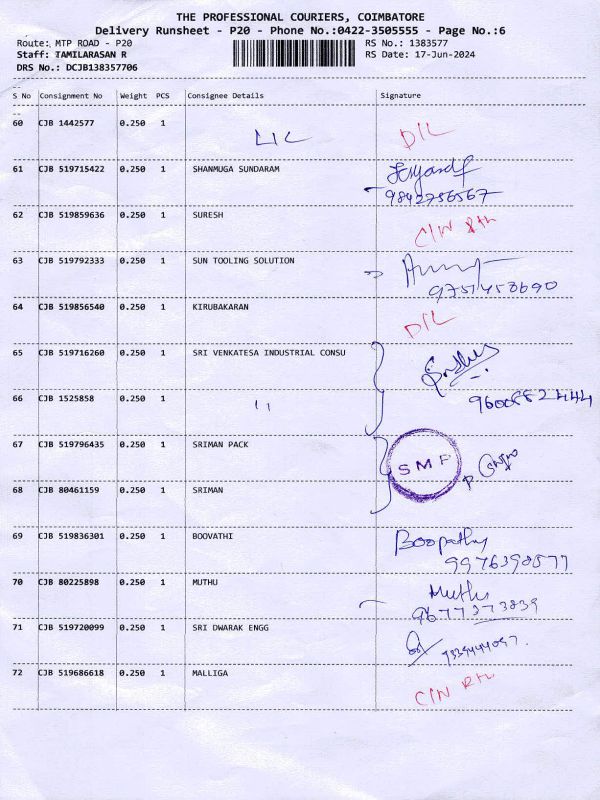 THE PROFESSIONAL COURIERS, COIMBATORE
Delivery Runsheet - P20 - Phone No.:0422-3505555 - Page No.:6
Route: MTP ROAD - P20 RS No.: 1383577
Staff: TAMILARASAN R RS Date: 17-Jun-2024
DRS No.: DCJB138357706
S No Consignment No Weight PCS Consignee Details Signature
60 CJB 1442577 0.250 1 LIC D/L
61 CJB 519715422 0.250 1 SHANMUGA SUNDARAM
9842756567
62 CJB 519859636 0.250 1 SURESH C/N
63 CJB 519792333 0.250 1 SUN TOOLING SOLUTION
9751458690
64 CJB 519856540 0.250 1 KIRUBAKARAN D/L
65 CJB 519716260 0.250 1 SRI VENKATESA INDUSTRIAL CONSU
66 CJB 1525858 0.250 1 ''
67 CJB 519796435 0.250 1 SRIMAN PACK SMP
68 CJB 80461159 0.250 1 SRIMAN
69 CJB 519836301 0.250 1 BOOVATHI Boopathy
9976398577
70 CJB 80225898 0.250 1 MUTHU Muthu
9677373839
71 CJB 519720099 0.250 1 SRI DWARAK ENGG
72 CJB 519686618 0.250 1 MALLIGA C/N